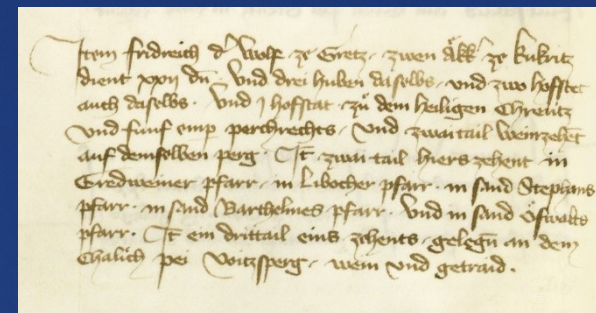 Item fridreich d' Wolf ze Gretz zwen Äkk' ze kukritz
dient xxij dn̄ . Vnd drei huben daselbs . vnd zwo hofstet
auch daselbs . Vnd j hofstat . zů dem heiligen Chreutz
vnd funf emp perchrechts . Vnd zwaitail Weinzehēt
auf demselben perg . It̄ zwai tail hiers zehent in
Gredweiner pfarr . in Libocher pfarr . in sand Stephans
pfarr . in sand Barthelmes pfarr . Vnd in sand Öswalts
pfarr . It̄ ein drittail eins zehents . gelegn̄ an dem
Chalich pei Voitzsperg . wein vnd getraid .